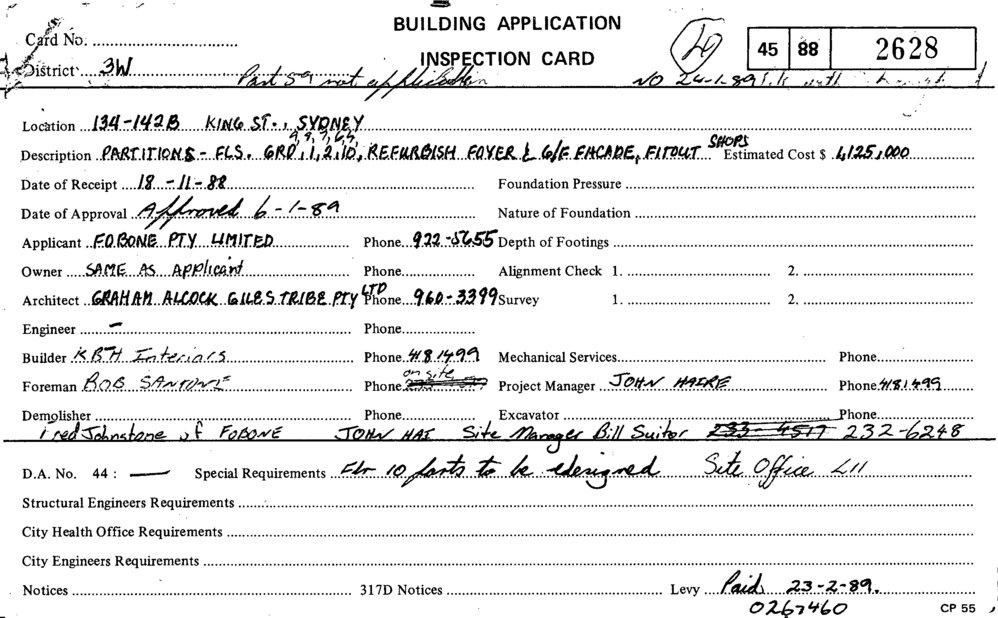 BUILDING APPLICATION
INSPECTION CARD
Card No. 20 45 88 2628
District 3W
Part 59 not application NO 24-1-89
Location 134-142B KING ST., SYDNEY
9,8,7,6,5,
Description PARTITIONS - FLS. GRD, 1, 2, 10, REFURBISH FOYER & G/F FACADE, FITOUT SHOPS Estimated Cost $ 4,125,000
Date of Receipt 18-11-88 Foundation Pressure
Date of Approval Approved 6-1-89 Nature of Foundation
Applicant FOBONE PTY LIMITED Phone 922-5655 Depth of Footings
Owner SAME AS APPlicant Phone Alignment Check 1. 2.
Architect GRAHAM ALCOCK GILES TRIBE PTY LTD Phone 960-3399 Survey 1. 2.
Engineer - Phone
Builder KBH Interiors Phone 4181499 Mechanical Services Phone
on site
Foreman ROB Phone Project Manager JOHN HAIRE Phone 4181499
Demolisher Phone Excavator Phone
Fred Johnstone of FOBONE JOHN HAI Site Manager Bill Suitor 233-4517 232-6248
D.A. No. 44: — Special Requirements Flr 10 parts to be edesigned Site Office L11
Structural Engineers Requirements
City Health Office Requirements
City Engineers Requirements
Notices 317D Notices Levy Paid 23-2-89.
0267460 CP 55